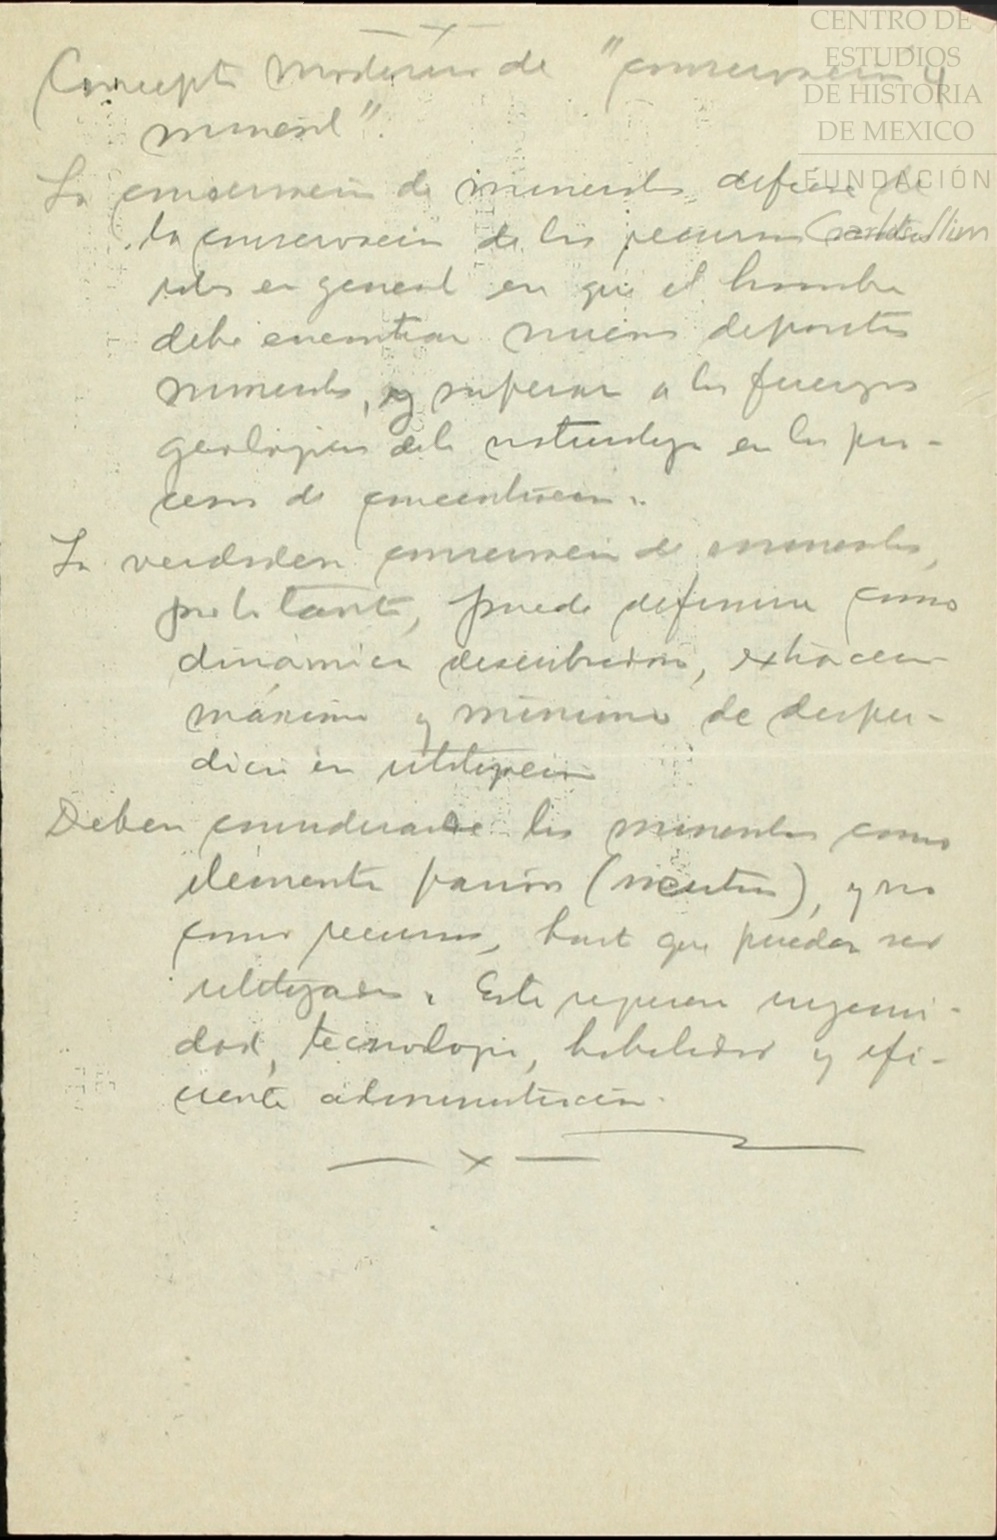 — x —
Concepto moderno de "conservación
mineral".
La conservación de minerales difiere de
la conservación de los recursos natu
rales en general en que el hombre
debe encontrar nuevos depósitos
minerales, y superar a las fuerzas
geológicas de la naturaleza en los pro-
cesos de concentración.
La verdadera conservación de minerales,
por lo tanto, puede definirse como
dinámica descubridora, extracción
máxima y mínimo de desper-
dicio en utilización
Deben considerarse los minerales como
elementos pasivos (neutros), y no
como recursos, hasta que puedan ser
utilizados. Esto requiere ingenui-
dad, tecnología, habilidad y efi-
ciente administración.
— x —
CENTRO DE
ESTUDIOS
DE HISTORIA
DE MEXICO
FUNDACIÓN
Carlos Slim